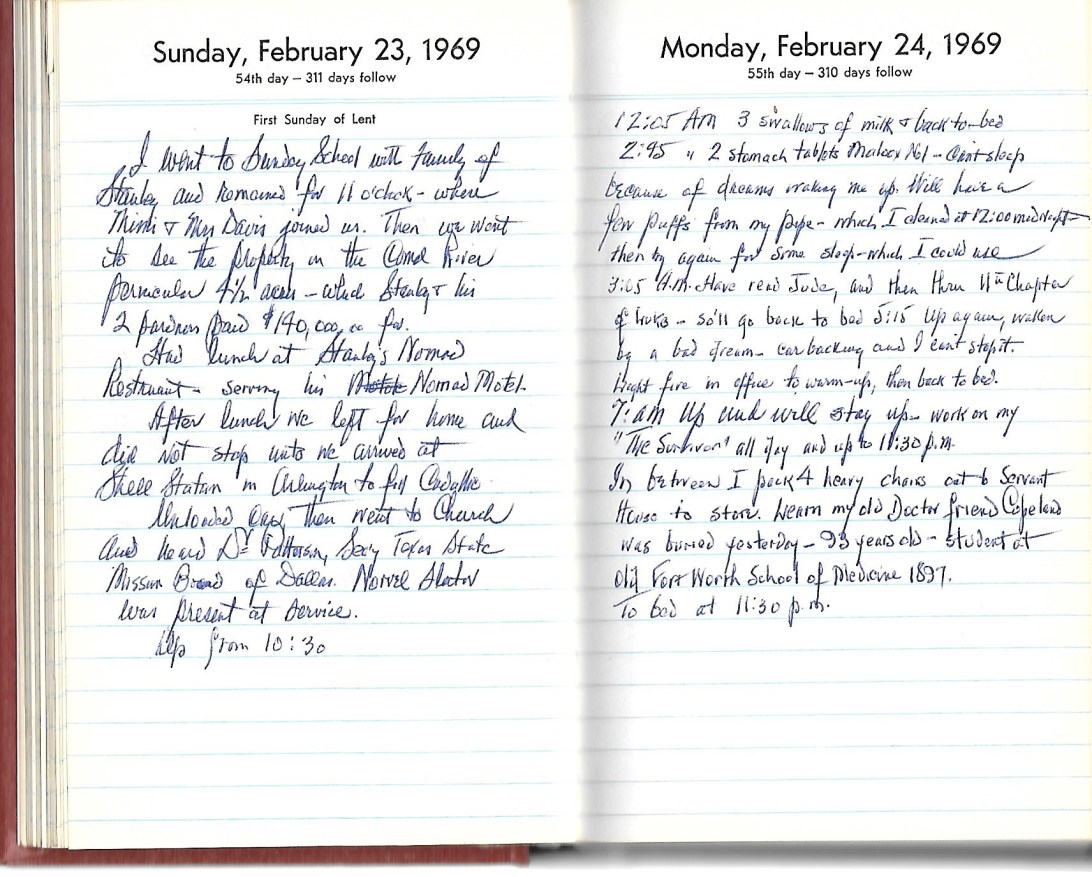 Sunday, February 23, 1969
54th day – 311 days follow
First Sunday of Lent
I went to Sunday School with family of
Stanley and Remained for 11 o'clock - where
Mimi & Mrs Davis joined us. Then we went
to see the property on the Comal River
4½ acres - which Stanley & his
2 pardners paid $140,000.00 for.
Had lunch at Stanley's Nomad
Restraunt - serving his Motel Nomad Motel.
After lunch we left for home and
did not stop until we arrived at
Shell Station in Arlington to fill Cadillac.
Unloaded Car, then went to Church
and heard Dr Patterson, Sec'y Texas State
Mission Board of Dallas. Norvel Slater
was present at Service.
Up from 10:30
Monday, February 24, 1969
55th day – 310 days follow
12:05 AM 3 swallows of milk & back to bed
2:45 " 2 stomach tablets Maalox No1 - Can't sleep
because of dreams waking me up. Will have a
few puffs from my pipe - which I cleaned at 12:00 midnight -
then try again for some sleep - which I could use
3:05 A.M. Have read Jude, and then thru 11th Chapter
of - so'll go back to bed 5:15 Up again, waken
by a bad dream - car backing and I can't stop it.
Light fire in office to warm-up, then back to bed.
7: am Up and will stay up - work on my
"The Survivor" all day and up to 11:30 p.m.
In between I pack 4 heavy chairs out to Servant
House to store. Learn my old Doctor friend Copeland
was buried yesterday - 93 years old - student at
old Fort Worth School of Medicine 1897.
To bed at 11:30 p.m.